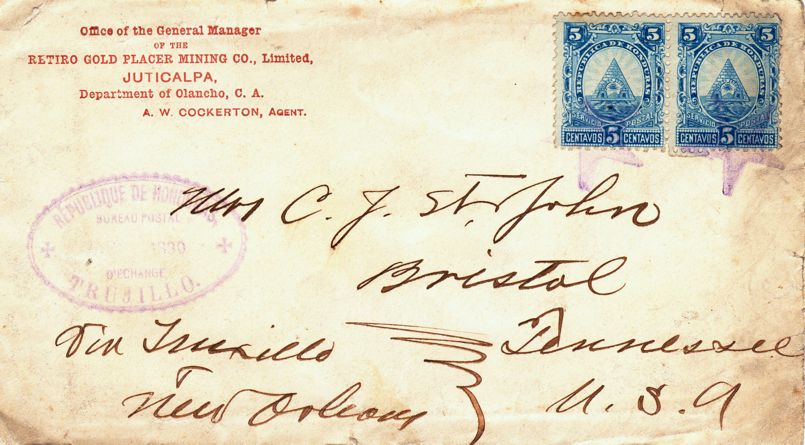 Office of the General Manager
OF THE
RETIRO GOLD PLACER MINING CO., Limited,
JUTICALPA,
Department of Olancho, C. A.
A. W. COCKERTON, AGENT.
5 5
REPUBLICA DE HONDURAS
SERVICIO POSTAL
CENTAVOS 5 CENTAVOS
5 5
REPUBLICA DE HONDURAS
SERVICIO POSTAL
CENTAVOS 5 CENTAVOS
REPUBLIQUE DE HONDURAS,
BUREAU POSTAL
D'ECHANGE
TRUJILLO.
Mrs C. J. St. John
Bristol
Tennessee
U. S. A
Via Truxillo
New Orleans